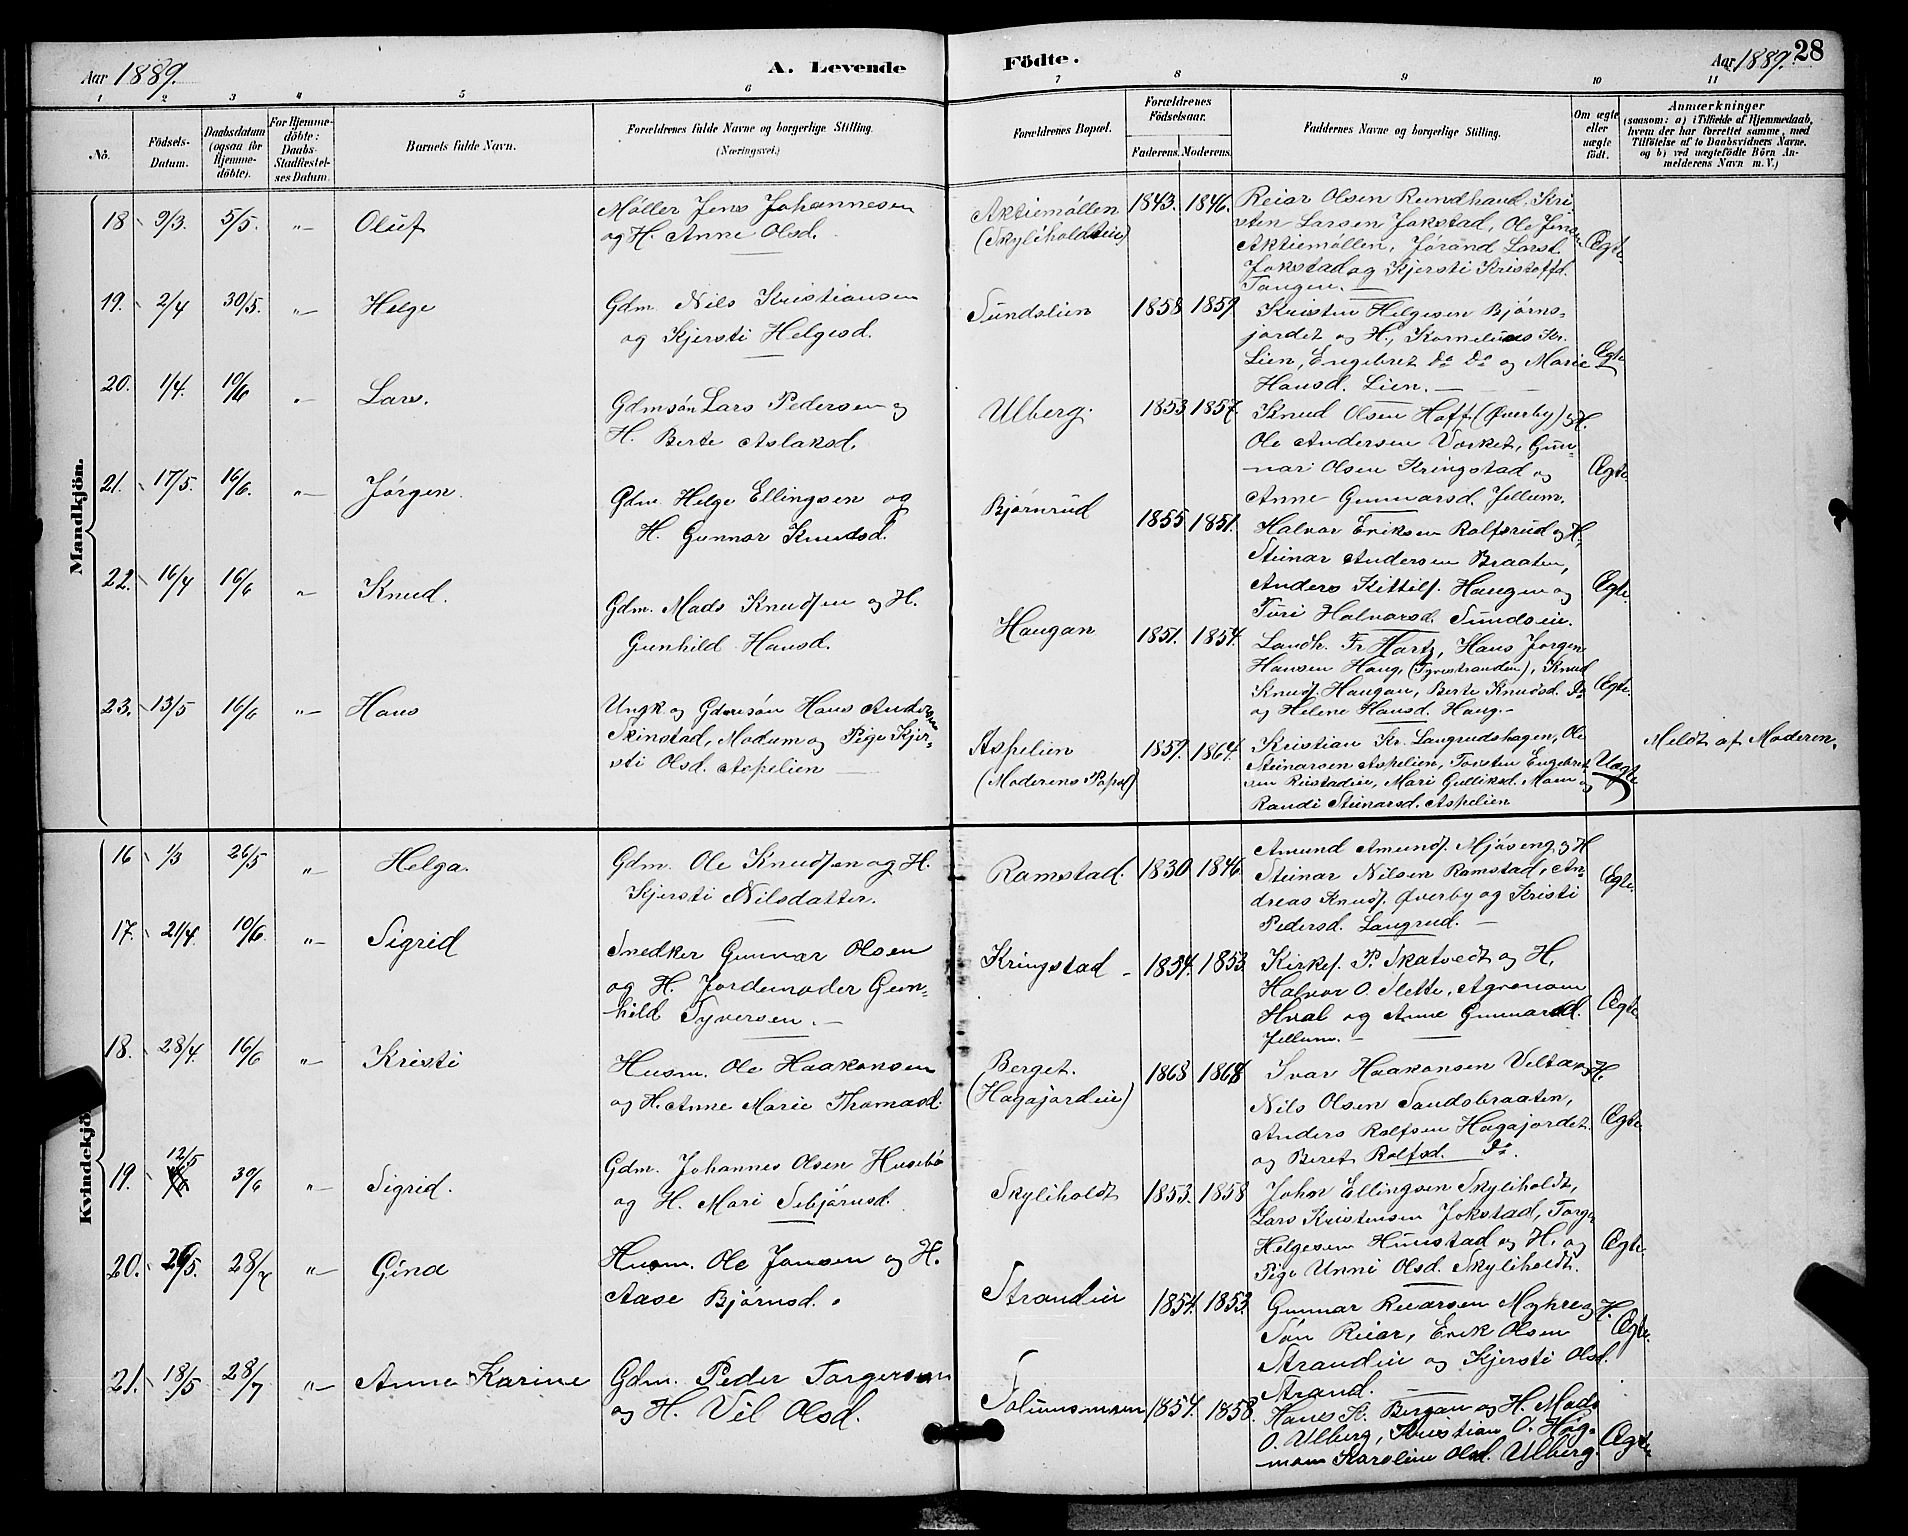 Aar 1889. A. Levende Födte. Aar 1889. 28
1 2 3 4 5 6 7 8 9 10 11
No.
Födsels-Datum.
Daabsdatum (ogsaa for Hjemme-döbte).
For Hjemme-döbte: Daabs-Stadfæstel-ses Datum.
Barnets fulde Navn.
Forældrenes fulde Navne og borgerlige Stilling. (Næringsvei.)
Forældrenes Bopæl.
Forældrenes Födselsaar.
Faderens. Moderens.
Faddernes Navne og borgerlige Stilling.
Om ægte eller uægte födt.
Anmærkninger
(saasom: a) i Tilfælde af Hjemmedaab,
hvem der har forrettet samme, med
Tilföielse af to Daabsvidners Navne,
og b) ved uægtefödte Börn An-
melderens Navn m. V.)
Mandkjön.
18 9/3. 5/5. " Oluf
Møller Jens Johannesen
og H. Anne Olsd.
Aktiemøllen
(Skyliholdteie)
1843. 1846.
Reiar Olsen Rundhaud, Kri
sten Larsen Jokstad, Ole Jensen
Aktiemøllen, Jørand Larsd.
Jokstad og Kjersti Kristoffd.
Tangen.
Ægte.
19. 2/4 30/5. " Helge
Gdm. Nils Kristiansen
og Kjersti Helgesd.
Sundslien
1858 1859
Kristen Helgesen Bjørns-
jordet og H., Kornelius Kr.
Lien, Engebret do do og Marie
Hansd. Lien.
Ægte
20. 1/4. 10/6 " Lars.
Gdmsøn Lars Pedersen og
H. Berte Aslaksd.
Ulberg.
1853 1857.
Knud Olsen Hoff (Øverby) og H.
Ole Andersen Vørket, Gun-
nar Olsen Kringstad og
Anne Gunnarsd. Jellum.
Ægte
21. 17/5. 16/6. " Jørgen.
Gdm. Helge Ellingsen og
H. Gunnor Knudsd.
Bjørnrud
1855 1851.
Halvor Eriksen Rolfsrud og H,
Steinar Andersen Braaten,
Anders Kittils. Haugen og
Turi Halvorsd. Sundseie.
Ægte.
22. 16/4 16/6 " Knud.
Gdm. Mads Knudsen og H.
Gunhild Hansd.
Haugan
1851. 1854.
Landh. Fr Hartz, Hans Jørgen
Hansen Haug, (Tyristranden), Knud
Knuds. Haugan, Berte Knudsd. do
og Helene Hansd. Haug.
Ægte.
23. 13/5 16/6 " Hans
Ungk og Gdmsøn Hans Andersen
Skinstad, Modum og Pige Kjer-
sti Olsd. Aspelien
Aspelien
(Moderens Bopæl)
1859. 1864.
Kristian Kr. Langrudshagen, Ole
Steinarsen Aspelien, Torsten Engebret
sen Rustadeie, Mari Gulliksd. Moen og
Randi Steinarsd. Aspelien
Uægte
Meldt af Moderen.
Kvindekjön
16 1/3 26/5 " Helga.
Gdm. Ole Knudsen og H.
Kjersti Nilsdatter.
Ramstad.
1830 1846.
Amund Amunds. Mjøseng og H
Steinar Nilsen Ramstad, An
dreas Knuds. Øverby og Kristi
Pedersd. Langrud.
Ægte.
17. 21/4. 10/6. " Sigrid
Snedker Gunnar Olsen
og H. Jordemoder Gun-
hild Syversen.
Kringstad
1854. 1853.
Kirkes. P. Skatvedt og H,
Halvor O. Slette, Agronom
Hval og Anne Gunnarsd.
Jellum.
Ægte.
18. 28/4. 16/6 " Kristi
Husm. Ole Haakonsen
og H. Anne Marie Thomasd.
Berget.
(Hagajordeie)
1868 1868
Ivar Haakonsen Velta og H.
Nils Olsen Sandsbraaten,
Anders Rolfsen Hagajordet.
og Beret Rolfsd. do.
Ægte.
19. 12/5 30/6 " Sigrid.
Gdm. Johannes Olsen Husebø
og H. Mari Sebjørnsd.
Skyliholdt
1853. 1858
John Ellingsen Skyliholdt,
Lars Kristensen Jokstad, Torge
Helgesen Hunstad og H. og
Pige Unni Olsd. Skyliholdt.
Ægte.
20. 26/5. 28/7 " Gina
Husm. Ole Jonsen og H.
Aase Bjørnsd.
Strandeie
1854. 1853.
Gunnar Reiarsen Myhre og H.
Søn Reiar, Erik Olsen
Strandeie og Kjersti Olsd.
Strand.
Ægte.
21. 18/5 28/7 " Anna Karine
Gdm. Peder Torgersen
og H. Vil Olsd.
Solumsmoen
1854. 1858.
Hans K. Bergan og H. Mads
O. Ulberg, Kristian O. Høg-
mom Karoline Olsd. Ulberg.
Ægte